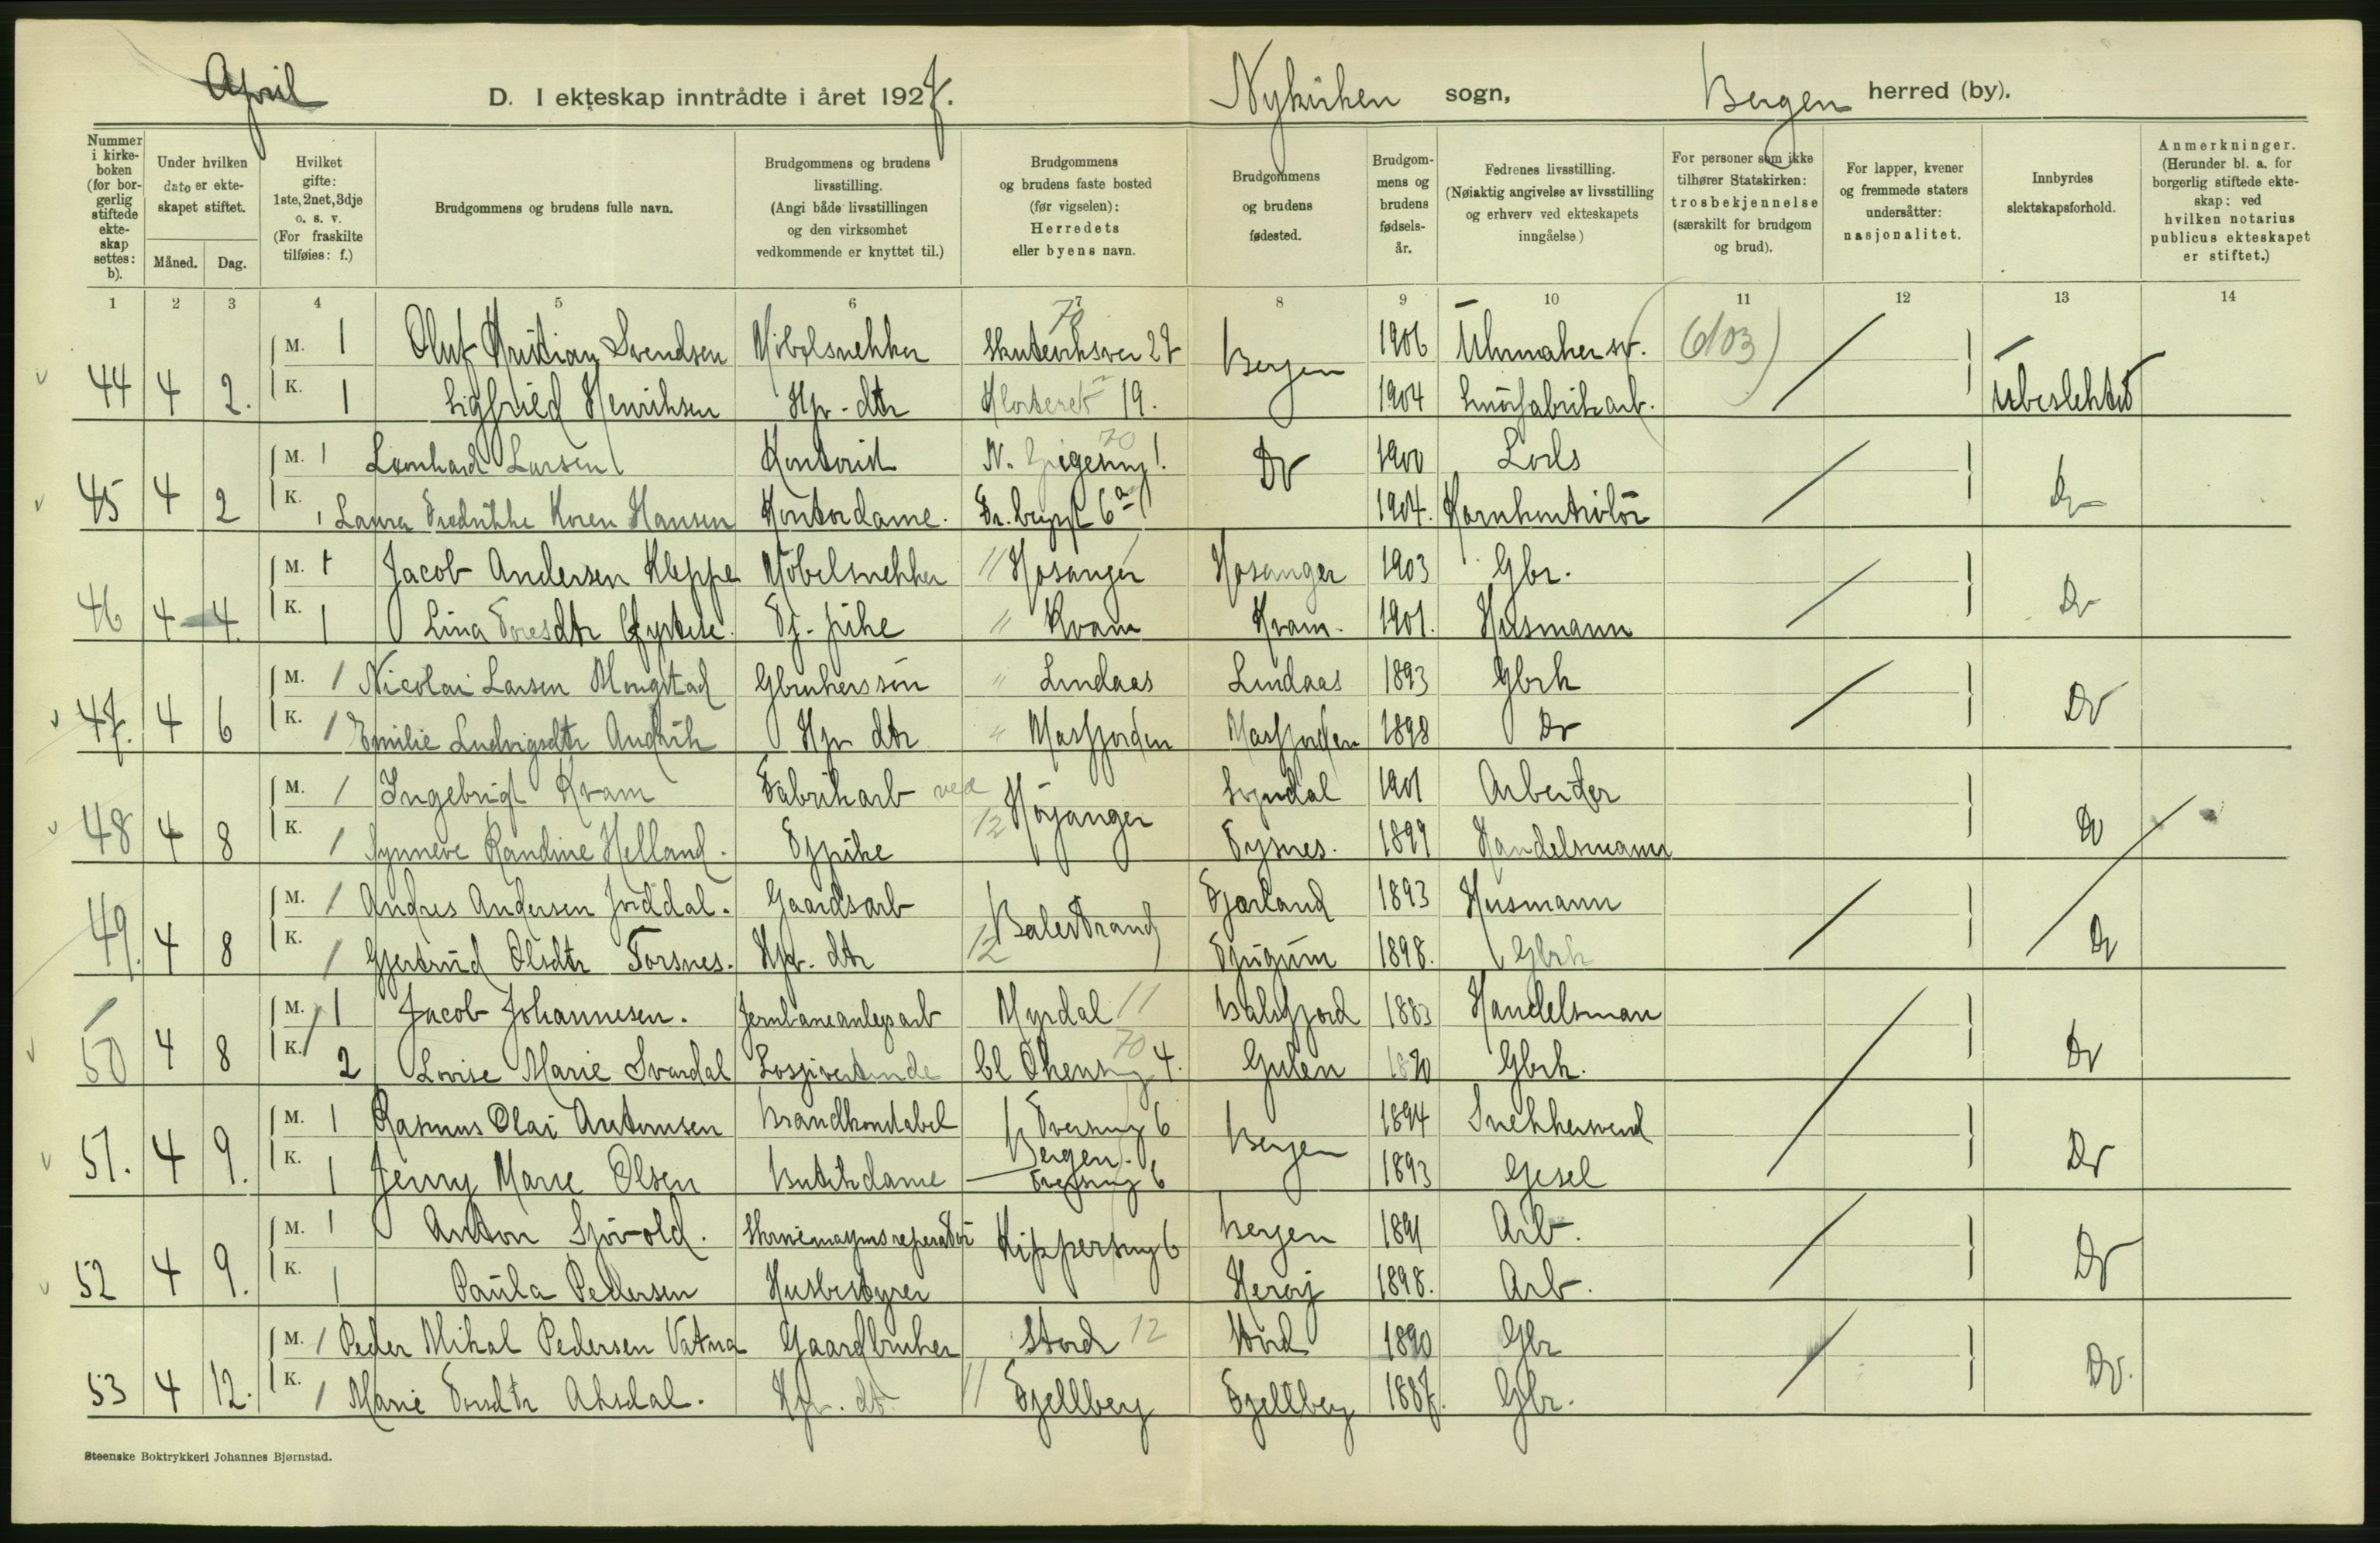 April D. I ekteskap inntrådte i året 1927. Nykirken sogn, Bergen herred (by).
Nummer i kirkeboken (for borgerlig stiftede ekteskap settes: b).
Under hvilken dato er ekteskapet stiftet.
Måned. Dag.
Hvilket gifte: 1ste, 2net, 3dje o. s. v. (For fraskilte tilføies: f.)
Brudgommens og brudens fulle navn.
Brudgommens og brudens livsstilling. (Angi både livsstillingen og den virksomhet vedkommende er knyttet til.)
Brudgommens og brudens faste bosted (før vigselen): Herredets eller byens navn.
Brudgommens og brudens fødested.
Brudgommens og brudens fødselsår.
Fedrenes livsstilling. (Nøiaktig angivelse av livsstilling og erhverv ved ekteskapets inngåelse)
For personer som ikke tilhører Statskirken: trosbekjennelse (særskilt for brudgom og brud).
For lapper, kvener og fremmede staters undersåtter: nasjonalitet.
Innbyrdes slektskapsforhold.
Anmerkninger. (Herunder bl. a. for borgerlig stiftede ekteskap: ved hvilken notarius publicus ekteskapet er stiftet.)
1 2 3 4 5 6 7 8 9 10 11 12 13 14
70
M. 1 Oluf Kristian Svendsen Möbelsnekker Skuteviksvei 27 Bergen 1906 Uhrmakersv. (6/03)
44 4 2. K. 1 Sigfried Henriksen Hjv-dtr Klosteret 19. 1904 Smörfabrikarb. Ubeslektet
70
M. 1 Leonhard Larsen Kontorist Do 1900 Lods
45 4 2 K. 1 Laura Fredrikke Koren Hansen Kontordame. 6a 1904. Kornkontrolör Do
M. 1 Jacob Andersen Kleppe Möbelsnekker " Hosanger Hosanger 1903 Gbr.
46 4 4. K. 1 Lina Toresdtr Tj-pike " Kvam Kvam. 1901. Husmann Do
M. 1 Nicolai Larsen Mongstad Gbrukerssön " Lindaas Lindaas 1893 Gbrk
47. 4 6 K. 1 Emilie Ludvigsdtr Andvik Hjv dtr " Masfjorden Masfjorden 1898 Do Do
M. 1 Ingebrigt Kvam Fabrikarb ved Höyanger Sogndal 1901 Arbeider
48 4 8 K. 1 Synneve Randine Helland. Tjpike 12 Tysnes. 1899 Handelsmann Do
M. 1 Andres Andersen Jorddal. Gaardsarb Balestrand Fjærland 1893 Husmann
49. 4 8 K. 1 Gjertrud Olsdtr Torsnes. Hjv. dtr 12 Tjugum 1898. Gbrk Do
M. 1 Jacob Johannesen. Jernbaneanlegsarb Myrdal 11 Balsfjord 1883 Handelsman
50 4 8 K. 2 Lovise Marie Svardal Losjivertinde 70 4. Gulen 1890 Gbrk. Do
M. 1 Rasmus Olai Antonsen Brandkonstabel 6 Bergen 1894 Snekkersvend
51. 4 9. K. 1 Jenny Marie Olsen Butikdame Bergen. 6 1893 Gesel Do
M. 1 Anton Sjövold. Skrivemaskinsreparatör Kippersmug 6 Bergen 1891 Arb.
52 4 9. K. 1 Paula Pedersen Husbestyrer Heröy 1898. Arb. Do
M. 1 Peder Mikal Pedersen Vatna Gaardbruker Stord 12 Stord 1890 Gbr
53 4 12. K. 1 Marie Torsdtr Aksdal. Hjv. dtr 11 Fjellberg Fjellberg 1887. Gbr. Do.
Steenske Boktrykkeri Johannes Bjørnstad.